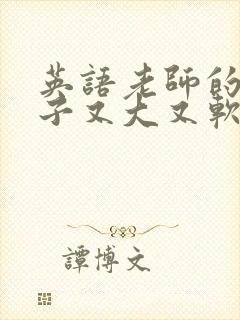 英語老師的
子又大又軟
譚博文